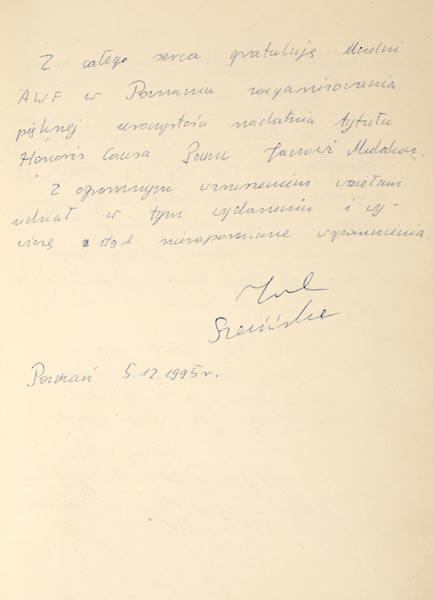 Z całego serca gratuluję Uczelni
AWF w Poznaniu zorganizowania
pięknej uroczystości nadania tytułu
Honoris Causa Panu
Z ogromnym wzruszeniem wzięłam
udział w tym wydarzeniu i wy-
wiozę stąd niezapomniane wspomnienia.
Poznań 5.12.1995r.